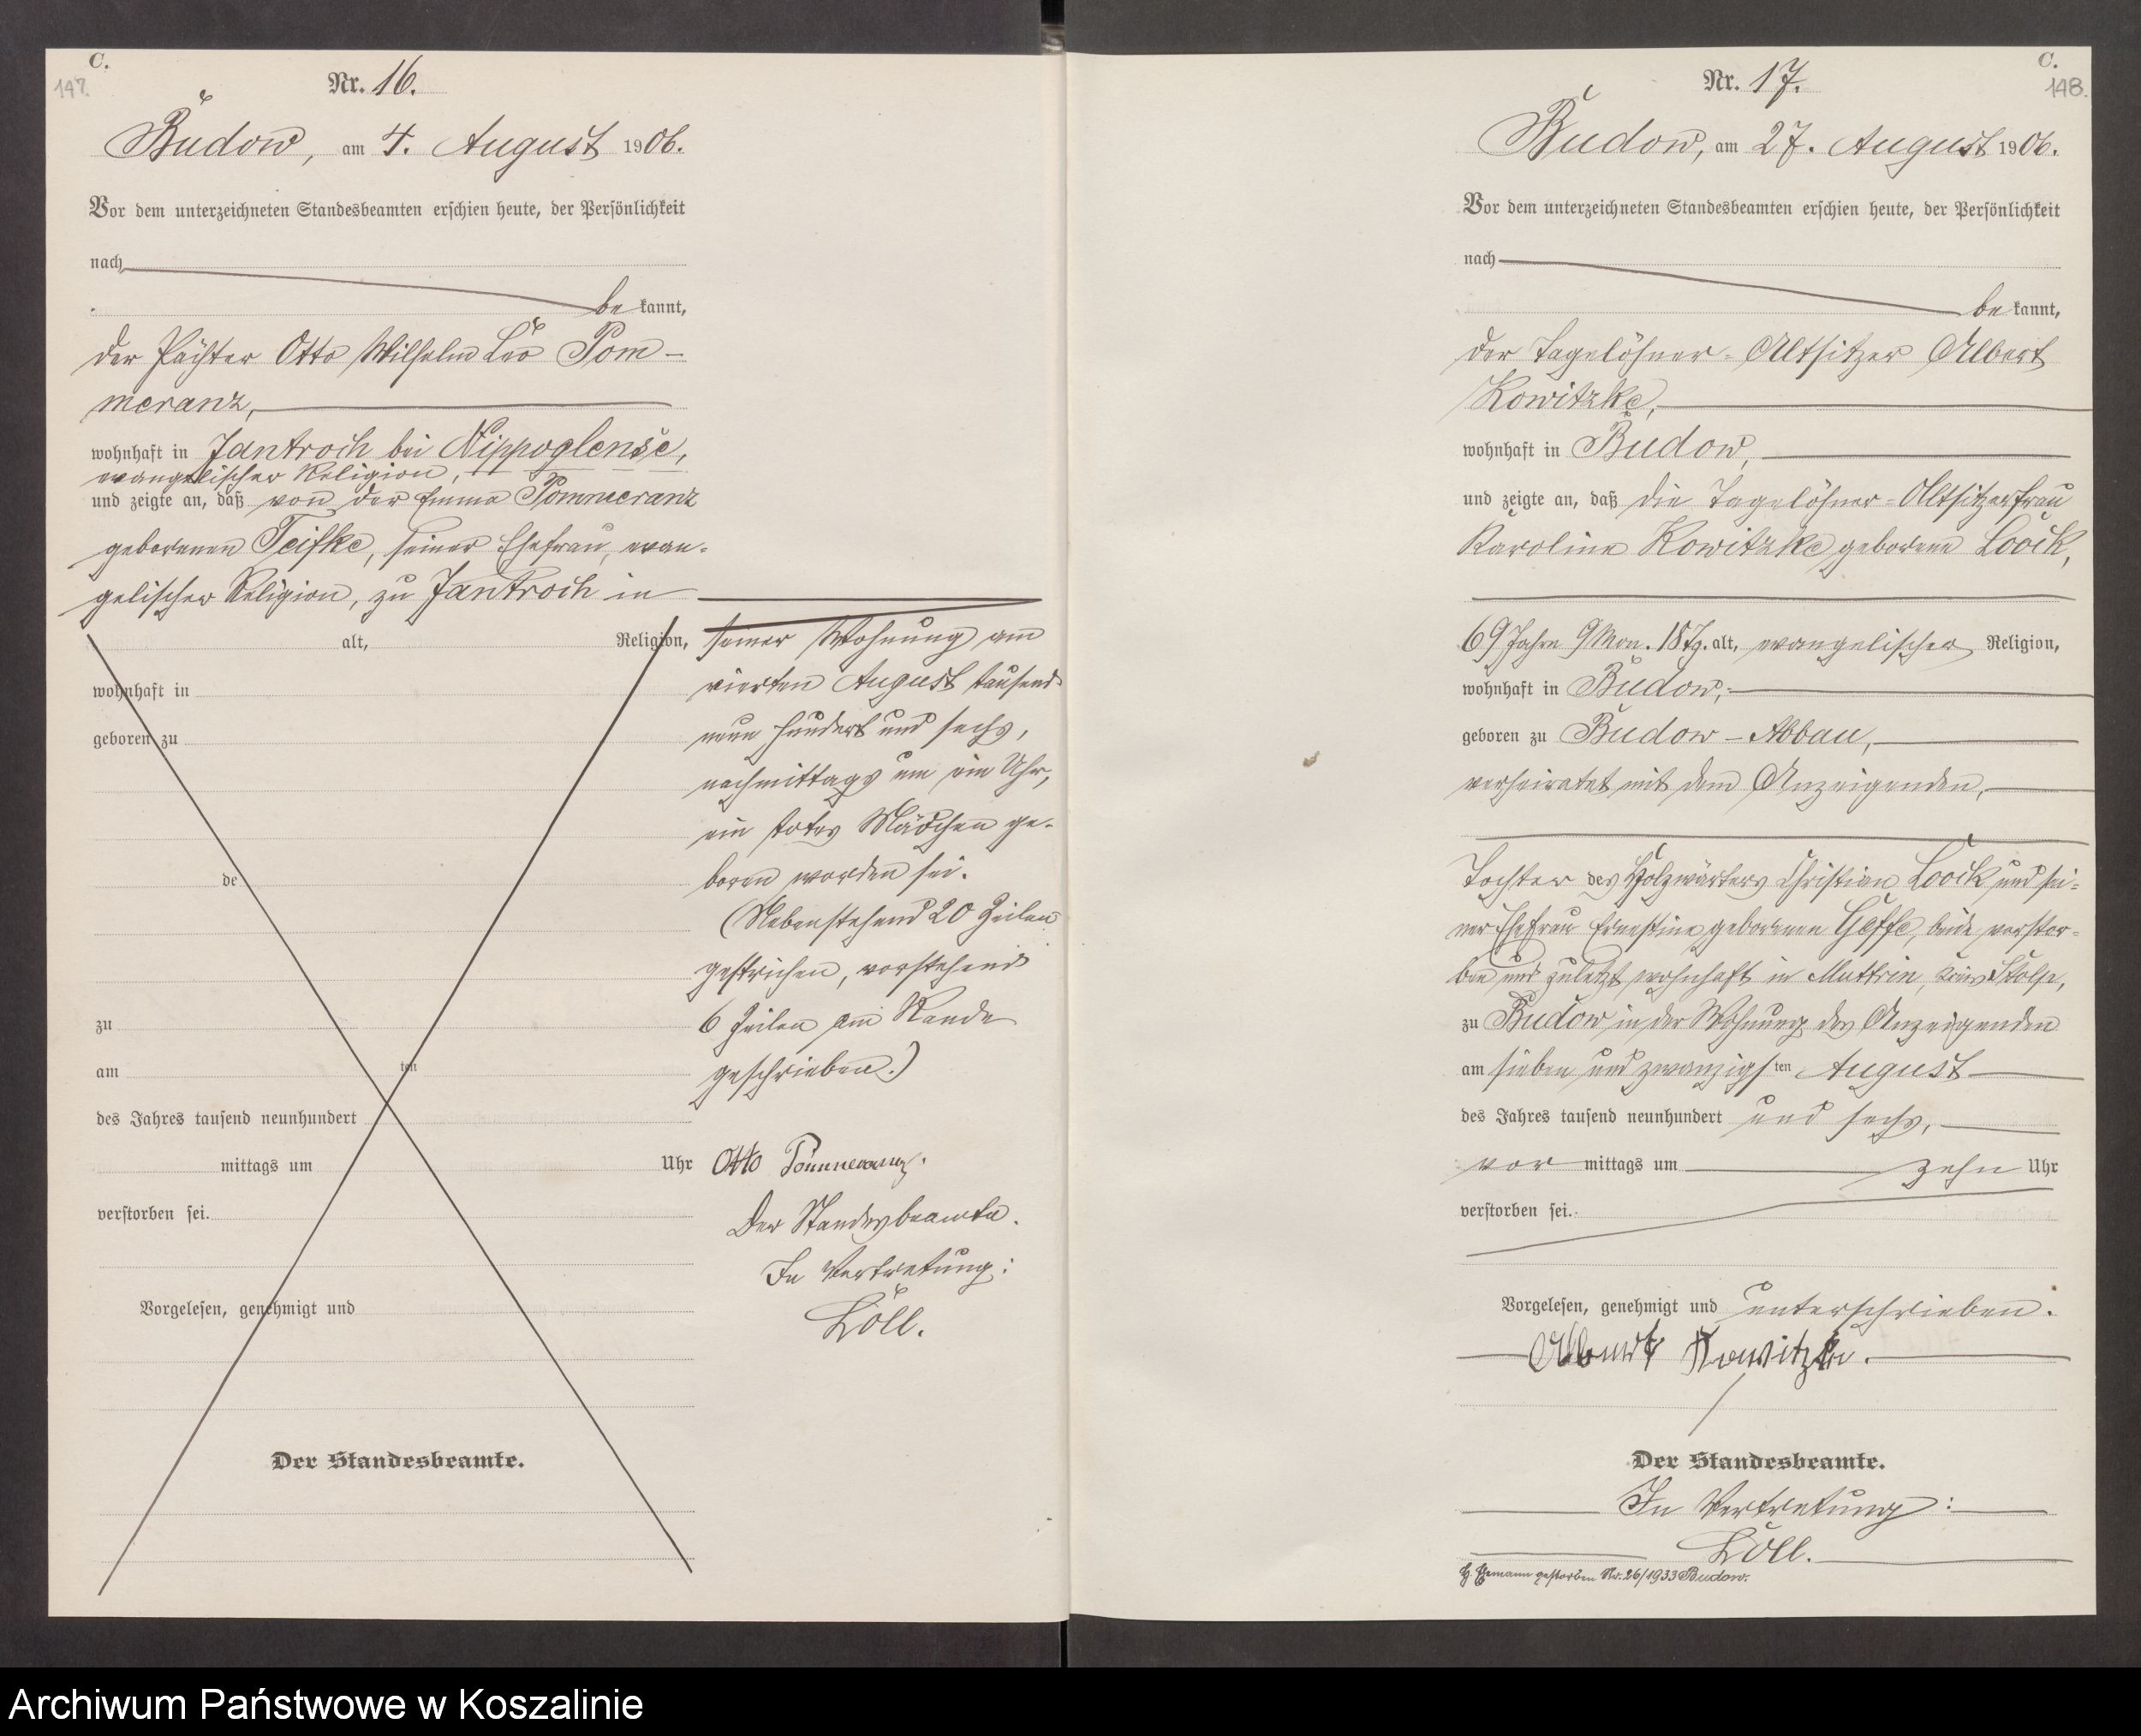 C.
147.
Nr. 16.
Budow, am 4. August 1906.
Vor dem unterzeichneten Standesbeamten erschien heute, der Persönlichkeit
nach
be kannt,
der Pächter Otto Wilhelm Leo Pom-
meranz,
wohnhaft in Jantroch bei Nippoglense,
evangelischer Religion,
und zeigte an, daß von der Emma Pommeranz
geborenen Teifke, seiner Ehefrau, evan-
gelischer Religion, zu Jantroch in
alt, Religion,
wohnhaft in
geboren zu
de
zu
am ten
des Jahres tausend neunhundert
mittags um Uhr
verstorben sei.
Vorgelesen, genehmigt und
Der Standesbeamte.
seiner Wohnung am
vierten August tausend
neun hundert und sechs,
nachmittags um ein Uhr,
ein totes Mädchen ge-
boren worden sei.
(Nebenstehend 20 Zeilen
gestrichen, vorstehend
6 Zeilen am Rande
geschrieben.)
Otto Pommeranz.
Der Standesbeamte.
In Vertretung:
Löll.
C.
148.
Nr. 17.
Budow, am 27. August 1906.
Vor dem unterzeichneten Standesbeamten erschien heute, der Persönlichkeit
nach
be kannt,
der Tagelöhner-Altsitzer Albert
Kowitzke,
wohnhaft in Budow,
und zeigte an, daß die Tagelöhner-Altsitzerfrau
Karoline Kowitzke geborene Loock,
69 Jahre 9 Mon. 18 Tg. alt, evangelischer Religion,
wohnhaft in Budow,
geboren zu Budow-Abbau,
verheiratet mit dem Anzeigenden,
Tochter des Holzwärters Christian Loock und sei-
ner Ehefrau Ernestine geborenen Geffe, beide verstor-
ben und zuletzt wohnhaft in Muttrin, Kreis Stolp,
zu Budow in der Wohnung des Anzeigenden
am sieben und zwanzigsten August
des Jahres tausend neunhundert und sechs,
vor mittags um zehn Uhr
verstorben sei.
Vorgelesen, genehmigt und unterschrieben.
Albert Kowitzke.
Der Standesbeamte.
In Vertretung:
Löll.
Ehemann gestorben Nr. 26/1933 Budow.
Archiwum Państwowe w Koszalinie